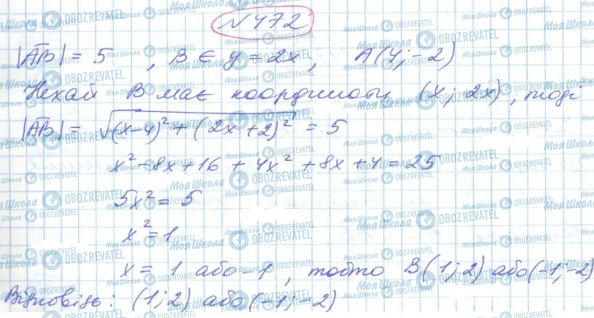 №472
|AB| = 5, B ∈ y = 2x, A(4; -2)
Нехай B має координати (x; 2x), тоді
|AB| = √(x-4)² + (2x+2)² = 5
x² - 8x + 16 + 4x² + 8x + 4 = 25
5x² = 5
x² = 1
x = 1 або -1, тобто B(1; 2) або (-1; -2)
Відповідь: (1; 2) або (-1; -2)
Моя Школа
OBOZREVATEL